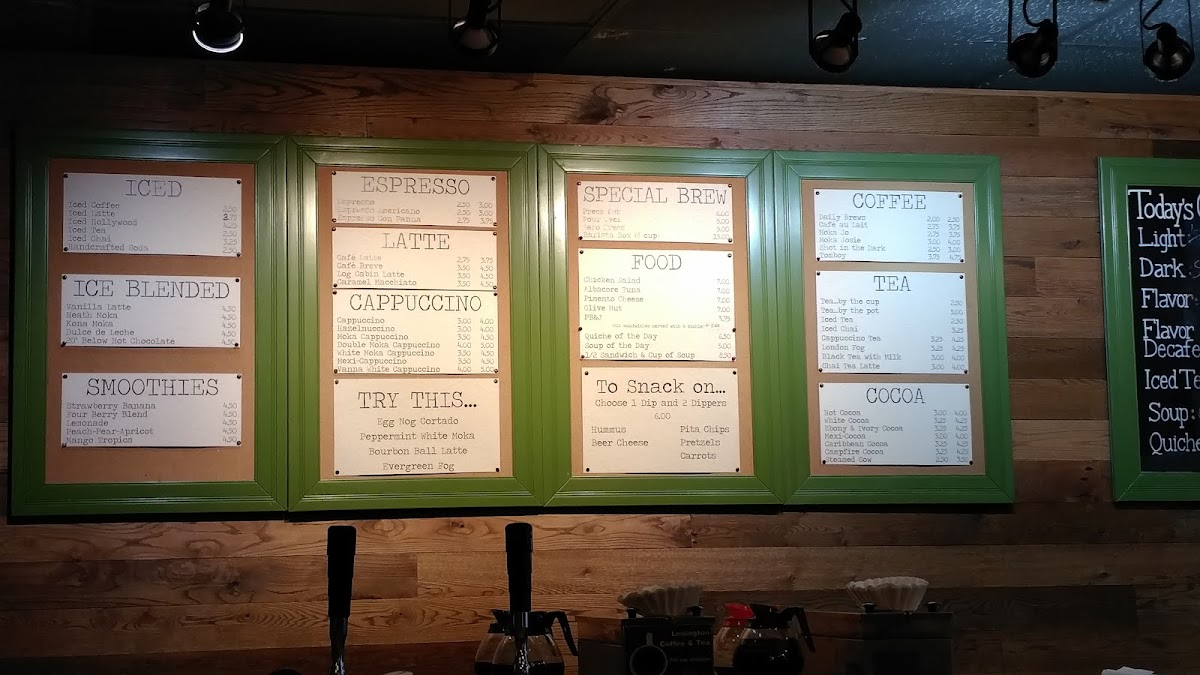 ICED
Iced Coffee 2.50
Iced Latte 3.75
Iced Hollywood 4.25
Iced Tea 2.50
Iced Chai 3.25
Handcrafted Soda 2.50
ICE BLENDED
Vanilla Latte 4.50
Heath Moka 4.50
Kona Moka 4.50
Dulce de Leche 4.50
20° Below Hot Chocolate 4.50
SMOOTHIES
Strawberry Banana 4.50
Four Berry Blend 4.50
Lemonade 4.50
Peach-Pear-Apricot 4.50
Mango Tropics 4.50
ESPRESSO
Espresso 2.50 3.00
Espresso Americano 2.50 3.00
Espresso Con Panna 2.75 3.75
LATTE
Café Latte 2.75 3.75
Café Breve 3.50 4.50
Log Cabin Latte 3.50 4.50
Caramel Macchiato 3.50 4.50
CAPPUCCINO
Cappuccino 3.00 4.00
Hazelnuccino 3.00 4.00
Moka Cappuccino 3.50 4.50
Double Moka Cappuccino 3.00 4.00
White Moka Cappuccino 3.50 4.50
Mexi-Cappuccino 3.50 4.50
Vanna White Cappuccino 4.00 5.00
TRY THIS...
Egg Nog Cortado
Peppermint White Moka
Bourbon Ball Latte
Evergreen Fog
SPECIAL BREW
Press Pot 4.00
Pour Over 3.00
Aero Press 3.00
Barista Box (8 cup) 15.00
FOOD
Chicken Salad 7.00
Albacore Tuna 7.00
Pimento Cheese 7.00
Olive Nut 7.00
PB&J 3.75
Quiche of the Day 6.50
Soup of the Day 5.00
1/2 Sandwich & Cup of Soup 8.50
To Snack on...
Choose 1 Dip and 2 Dippers
6.00
Hummus Pita Chips
Beer Cheese Pretzels
Carrots
COFFEE
Daily Brews 2.00 2.50
Café au Lait 2.75 3.75
Moka Jo 2.75 3.75
Moka Josie 3.00 4.00
Shot in the Dark 2.50 3.00
Tomboy 3.75 4.75
TEA
Tea…by the cup 2.50
Tea…by the pot 5.00
Iced Tea 2.50
Iced Chai 3.25
Cappuccino Tea 3.25 4.25
London Fog 3.25 4.25
Black Tea with Milk 3.00 4.00
Chai Tea Latte 3.00 4.00
COCOA
Hot Cocoa 3.00 4.00
White Cocoa 3.25 4.25
Ebony & Ivory Cocoa 3.25 4.25
Mexi-Cocoa 3.00 4.00
Caribbean Cocoa 3.25 4.25
Campfire Cocoa 3.25 4.25
Steamed Cow 2.50 3.50
Today's
Light
Dark
Flavor
Flavor
Decafe
Iced Te
Soup:
Quiche
Lexington
Coffee & Tea